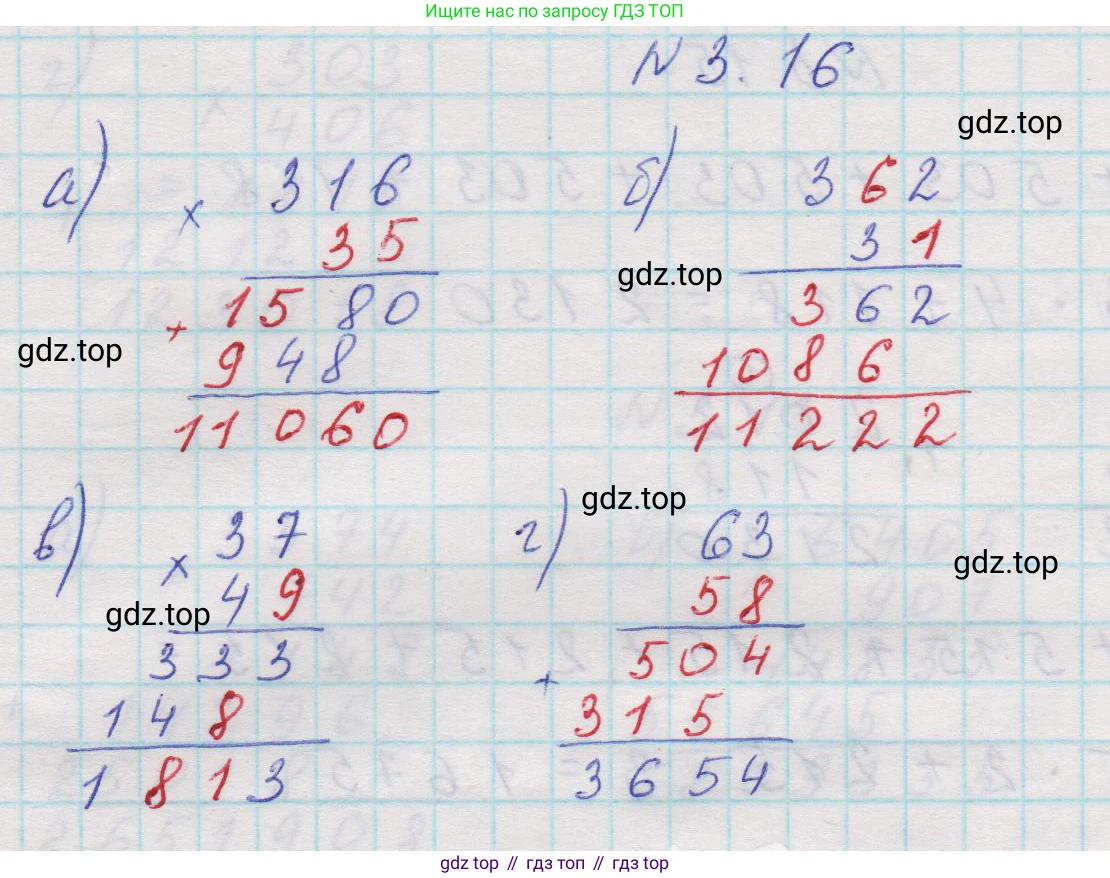 Ищите нас по запросу ГДЗ ТОП
N 3.16
gdz.top
а) × 316
35
1580
+
948
11060
gdz.top
б) 362
31
gdz.top
362
1086
11222
в) × 37
49
gdz.top
333
148
1813
gdz.top
г) 63
58
gdz.top
504
+
315
3654
gdz top // гдз топ // гдз top